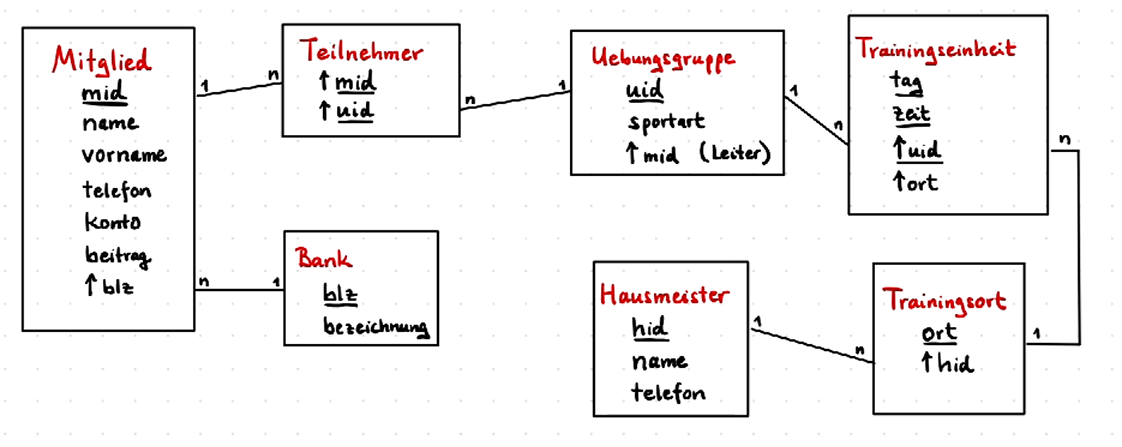 Mitglied
mid
name
vorname
telefon
konto
beitrag
↑ blz
1
n
Teilnehmer
↑ mid
↑ uid
n
1
Uebungsgruppe
uid
sportart
↑ mid (Leiter)
1
n
Trainingseinheit
tag
zeit
↑ uid
↑ ort
n
1
n
1
Bank
blz
bezeichnung
Hausmeister
hid
name
telefon
1
n
Trainingsort
ort
↑ hid